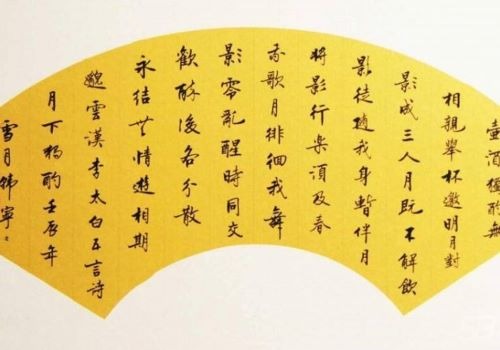 壺酒獨酌無
相親舉杯邀明月對
影成三人月既不解飲
影徒隨我身暫伴月
將影行樂須及春
我歌月徘徊我舞
影零亂醒時同交
歡醉後各分散
永結無情遊相期
邈雲漢李太白五言詩
月下獨酌壬辰年
雪月韓寧